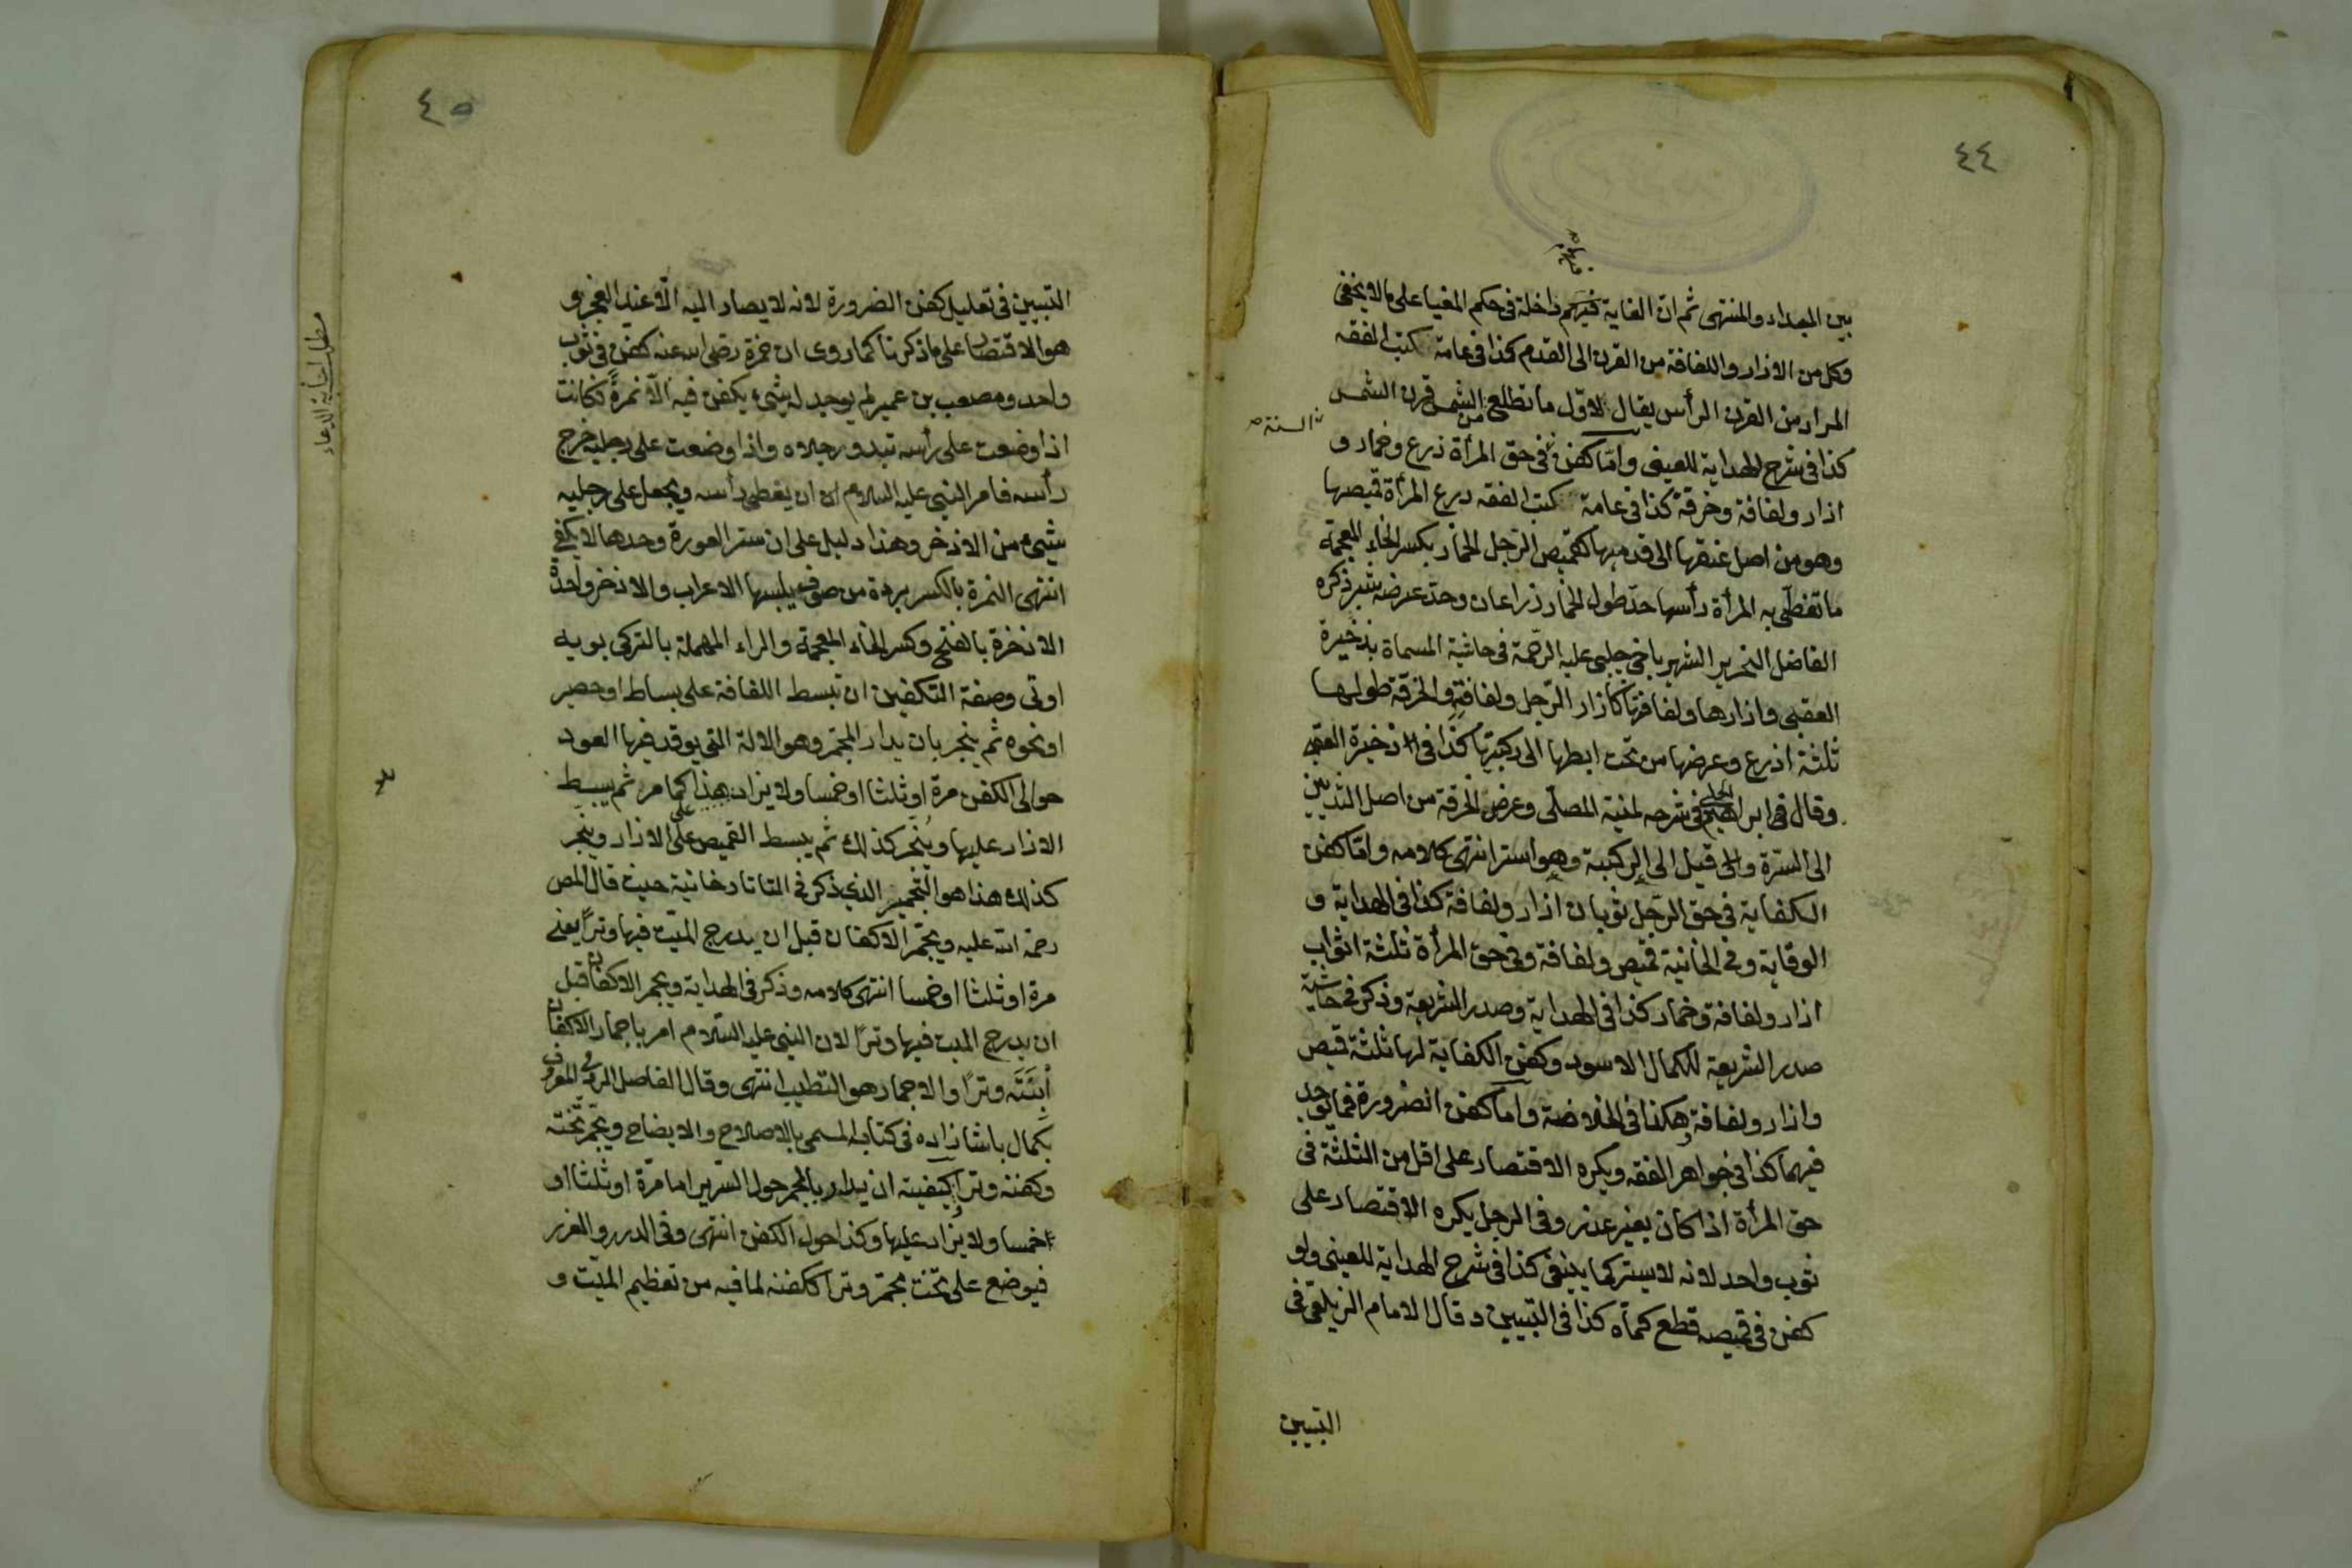 ٤٤
بين المبداء والمنتهى ثم ان الغاية فيهم داخلة فى حكم المغيا على ما لا يخفى
وكل من الازار واللفافة من القرن الى القدم كذا فى عامة كتب الفقه
المراد من القرن الرأس يقال لاوّل ما تطلع من الشمس قرن الشمس
كذا فى شرح الهداية للعينى وامّا كفن السنة فى حق المرأة درع وخمار و
ازار ولفافة وخرقة كذا فى عامة كتب الفقه درع المرأة قميصها
وهو من اصل عنقها الى قدميها كقميص الرجل الخمار بكسر الخاء المعجمة
ما تغطّى به المرأة رأسها حدّ طول الخمار ذراعان وحدّ عرضه شبر ذكره
الفاضل النحرير الشهير باخى جلبى عليه الرحمة فى حاشية المسماة بذخيرة
العقبى وازارها ولفافتها كازار الرّجل ولفافته والخرقة طولها
ثلثة اذرع وعرضها من تحت ابطها الى ركبتها كذا فى ذخيرة العقبى
وقال فى ابراهيم الحلبى فى شرحه لمنية المصلّى وعرض الخرقة من اصل الثديين
الى السّرة وقيل الى الركبة وهو استر انتهى كلامه وامّا كفن
الكفاية فى حق الرّجل ثوبان ازار ولفافة كذا فى الهداية و
الوقاية وفى الخانية قميص ولفافة وفى حق المرأة ثلثة اثواب
ازار ولفافة وخمار كذا فى الهداية وصدر الشريعة وذكر فى حاشية
صدر الشريعة للكمال الاسود وكفن الكفاية لها ثلثة قميص
وازار ولفافة هكذا فى الخلاصة وامّا كفن الضرورة فما يوجد
فيهما كذا فى جواهر الفقه ويكره الاقتصار على اقل من الثلثة فى
حق المرأة اذا كان بغير عذر وفى الرجل يكره الاقتصار على
ثوب واحد لانه لا يستر كما ينبغى كذا فى شرح الهداية للعينى ولو
كفن فى قميصه قطع كماه كذا فى التبيين وقال الامام الزيلعى فى
التبيين
٤٥
التبيين فى تعليل كفن الضرورة لانه لا يصار اليه الّا عند العجز و
هو الاقتصار على ما ذكرنا كما روى ان حمزة رضى الله عنه كفن فى ثوب
واحد ومصعب بن عمير لم يوجد له شىء يكفن فيه الّا نمرة فكانت
اذا وضعت على رأسه تبدو رجلاه واذا وضعت على رجليه خرج
رأسه فامر النبى عليه السلام ان يغطى رأسه ويجعل على رجليه
شىء من الاذخر وهذا دليل على ان ستر العورة وحدها لا يكفى
انتهى النمرة بالكسر بردة من صوف يلبسها الاعراب والاذخر واحدة
الاذخرة بالفتح وكسر الخاء المعجمة والراء المهملة بالتركى بويه
اوتى وصفة التكفين ان تبسط اللفافة على بساط او حصير
او نحوه ثم يبخر بان يدار المجمر وهو الالة التى يوقد فيها العود
حوالى الكفن مرة او ثلثا او خمسا ولا يزاد هذا كما مر ثم يبسط
الازار عليها ويبخر كذلك ثم يبسط القميص على الازار ويبخر
كذلك هذا هو التجمير الذى ذكر فى التاتارخانية حيث قال المص
رحمة الله عليه ويجمر الاكفان قبل ان يدرج الميّت فيها وترًا يعنى
مرة او ثلثا او خمسا انتهى كلامه وذكر فى الهداية ويجمر الاكفان قبل
ان يدرج الميت فيها وترًا لان النبى عليه السّلام امر باجمار اكفان
ابنته وترًا والاجمار هو التطييب انتهى وقال الفاضل الرومى المعروف
بكمال باشا زاده فى كتابه المسمى بالاصلاح والايضاح ويجمر تخته
وكفنه وترا كيفيته ان يدار بالمجمر حول السّرير اما مرّة او ثلثا او
خمسا ولا يزاد عليها وكذا حول الكفن انتهى وفى الدرر والغرر
فيوضع على تخت مجمّر وترا ككفنه لما فيه من تعظيم الميّت و